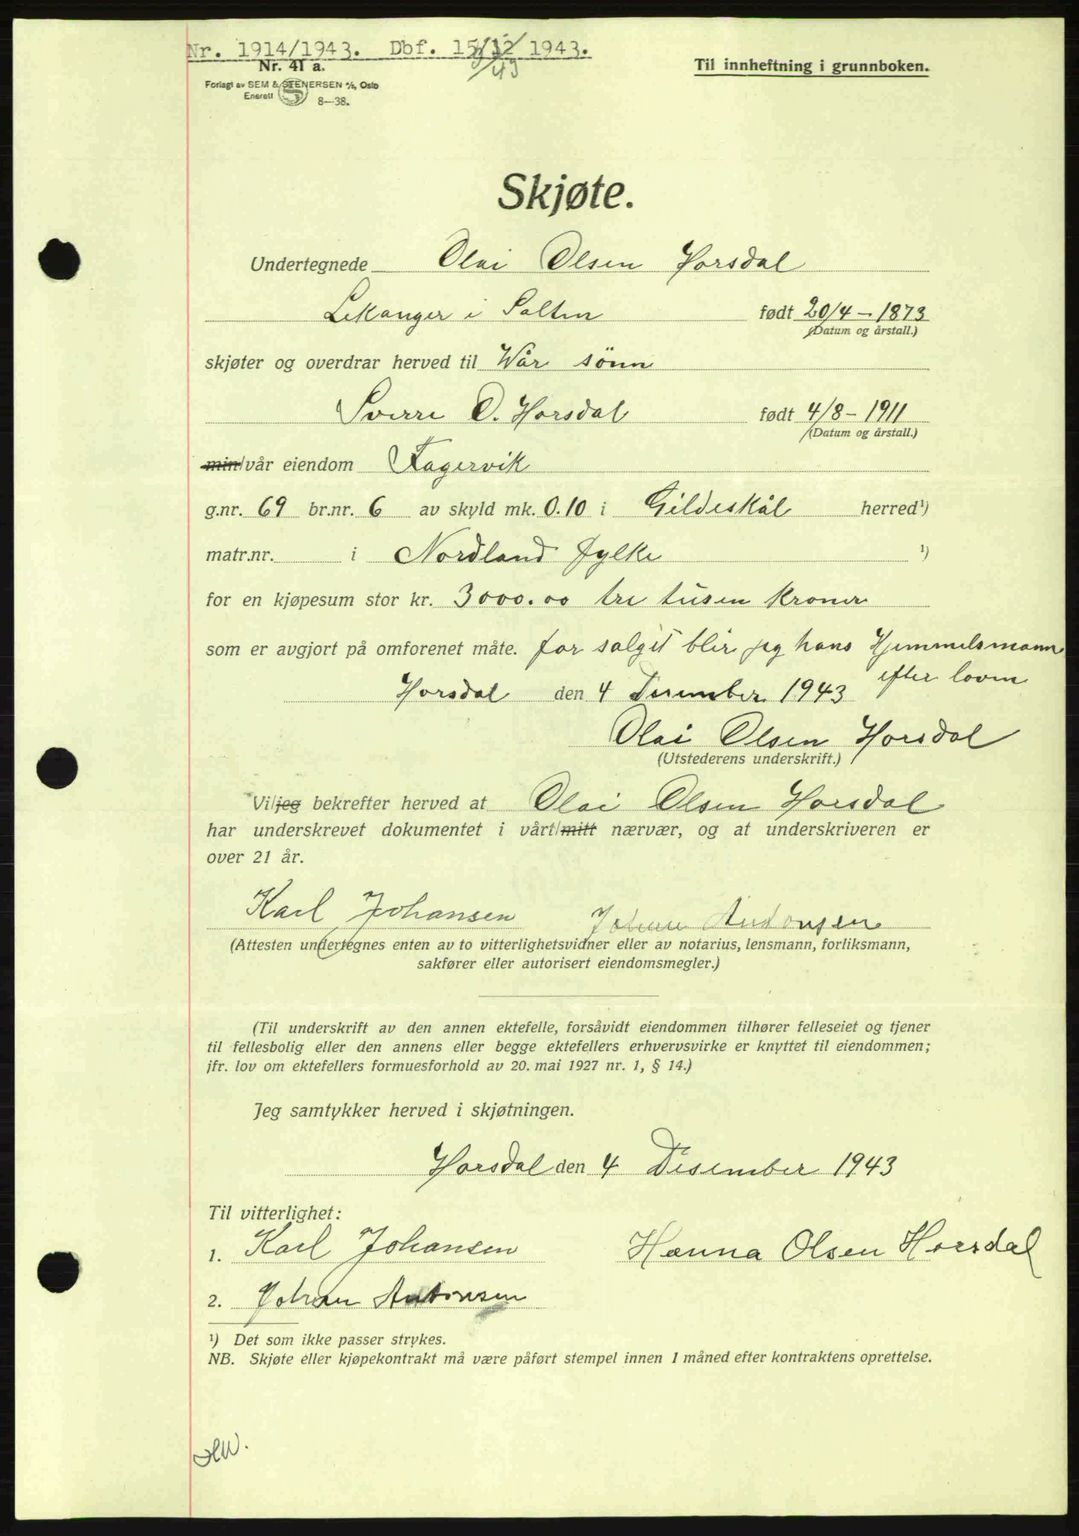 Nr. 1914/1943. Dbf. 15/12 1943.
Nr. 41 a.
Til innheftning i grunnboken.
Forlagt av SEM & STENERSEN A/S, Oslo
Enerett 8—38.
Skjøte.
Undertegnede Olai Olsen Horsdal
Lekanger i Salten født 20/4 - 1873
(Datum og årstall.)
skjøter og overdrar herved til Wår sönn
Sverre O. Horsdal født 4/8 - 1911
(Datum og årstall.)
min/vår eiendom Fagervik
g.nr. 69 br.nr. 6 av skyld mk. 0.10 i Gildeskål herred¹)
matr.nr. i Nordland fylke ¹)
for en kjøpesum stor kr. 3000.00 tre tusen kroner
som er avgjort på omforenet måte. for salget blir jeg hans Hjemmelsmann
efter loven
Horsdal den 4 Desember 1943
Olai Olsen Horsdal
(Utstederens underskrift.)
Vi/jeg bekrefter herved at Olai Olsen Horsdal
har underskrevet dokumentet i vårt/mitt nærvær, og at underskriveren er
over 21 år.
Karl Johansen Johan Antonsen
(Attesten undertegnes enten av to vitterlighetsvidner eller av notarius, lensmann, forliksmann,
sakfører eller autorisert eiendomsmegler.)
(Til underskrift av den annen ektefelle, forsåvidt eiendommen tilhører felleseiet og tjener
til fellesbolig eller den annens eller begge ektefellers erhvervsvirke er knyttet til eiendommen;
jfr. lov om ektefellers formuesforhold av 20. mai 1927 nr. 1, § 14.)
Jeg samtykker herved i skjøtningen.
Horsdal den 4 Desember 1943
Til vitterlighet:
1. Karl Johansen Hanna Olsen Horsdal
2. Johan Antonsen
¹) Det som ikke passer strykes.
NB. Skjøte eller kjøpekontrakt må være påført stempel innen 1 måned efter kontraktens oprettelse.
HW.